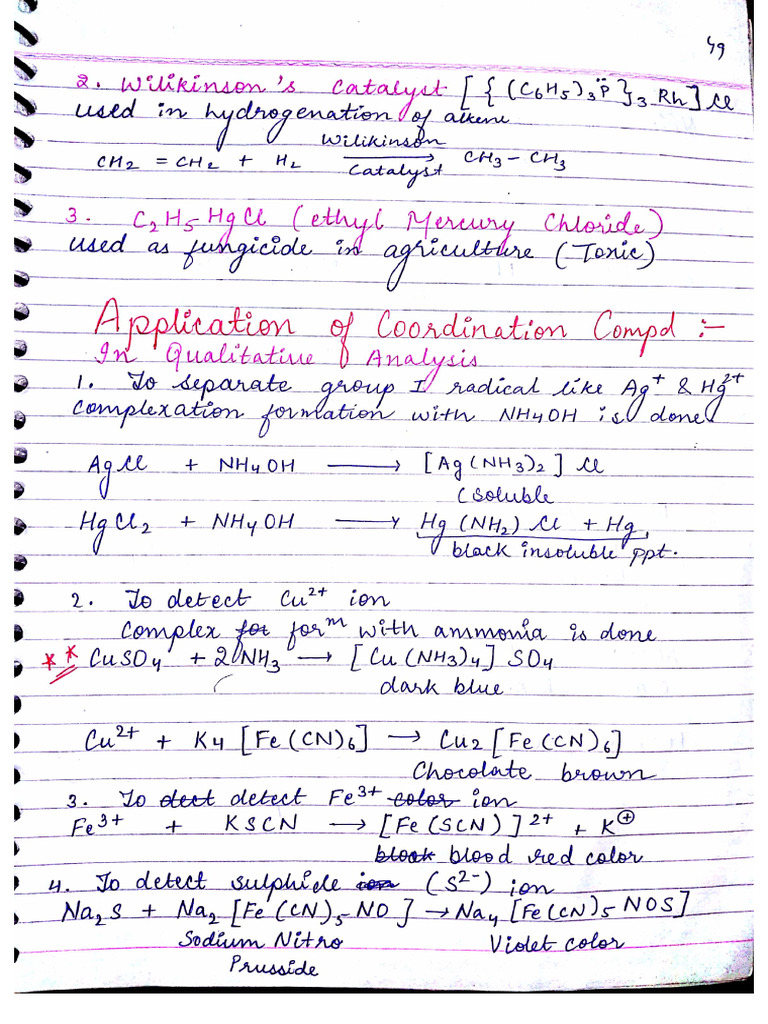 49
2. Wilikinson's Catalyst [{(C6H5)3P̈}3 Rh] Cl
used in hydrogenation of alkene
CH2 = CH2 + H2 ⟶ CH3 – CH3
Wilikinson
Catalyst
3. C2H5HgCl (ethyl Mercury Chloride)
used as fungicide in agriculture (Tonic)
Application of Coordination Compd :-
In Qualitative Analysis
1. To separate group I radical like Ag⁺ & Hg²⁺
Complexation formation with NH4OH is done
AgCl + NH4OH ⟶ [Ag(NH3)2] Cl
(soluble
HgCl2 + NH4OH ⟶ Hg(NH2)Cl + Hg
black insoluble ppt.
2. To detect Cu²⁺ ion
Complex for formᵐ with ammonia is done
** CuSO4 + 2NH3 ⟶ [Cu(NH3)4] SO4
dark blue
Cu²⁺ + K4 [Fe(CN)6] ⟶ Cu2 [Fe(CN)6]
Chocolate brown
3. To dect detect Fe³⁺ color ion
Fe³⁺ + KSCN ⟶ [Fe(SCN)]²⁺ + K⊕
blook blood red color
4. To detect sulphide ion (S²⁻) ion
Na2S + Na2 [Fe(CN)5NO] ⟶ Na4 [Fe(CN)5NOS]
Sodium Nitro Violet color
Prusside